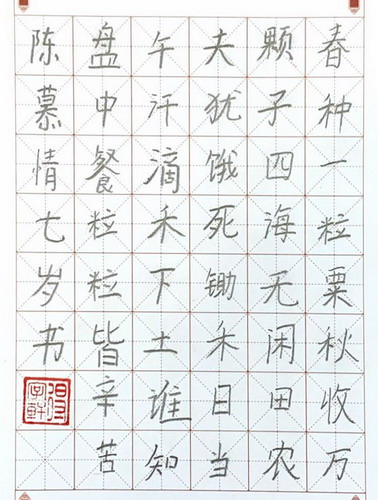 春种一粒粟秋收万
颗子四海无闲田农
夫犹饿死锄禾日当
午汗滴禾下土谁知
盘中餐粒粒皆辛苦
陈慕情七岁书